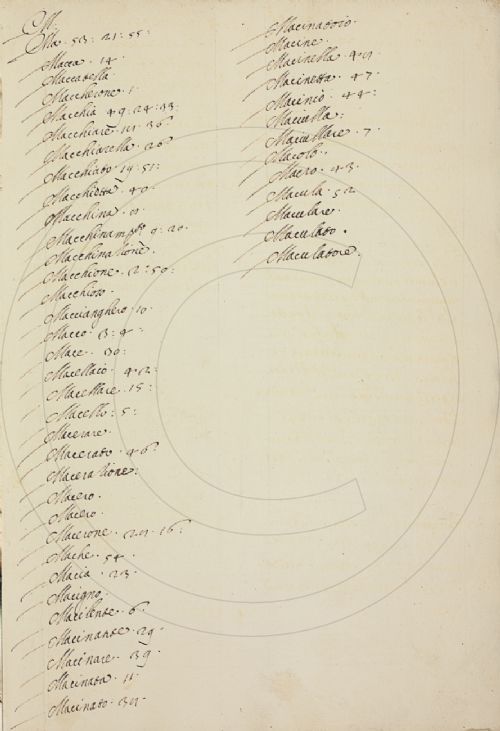 M.
Ma. 53: 21: 55:
Macca. 14.
Maccatella.
Maccherone. 1
Macchia. 49: 24: 33:
Macchiare. 36
Macchiarella. 26
Macchiato. 19. 51:
Macchietta. 40.
Macchina.
Macchinam.to 20.
Macchinatione.
Macchione. 12: 50:
Macchioso.
Maccianghero. 10.
Macco. 13: 4.
Mace. 30:
Macellaio. 42:
Macellare. 15:
Macello: 5:
Macerare.
Macerato. 46.
Maceratione:
Macero.
Macero.
Macerone. 16:
Mache. 54.
Macia. 23.
Macigno.
Macilente. 6.
Macinante. 29.
Macinare. 39.
Macinata. 11.
Macinato.
Macinatoio.
Macine.
Macinella.
Macinetta. 47.
Macinio. 44:
Maciulla:
Maciullare. 7.
Macolo.
Macro. 43.
Macula. 52.
Maculare.
Maculato.
Maculatore.